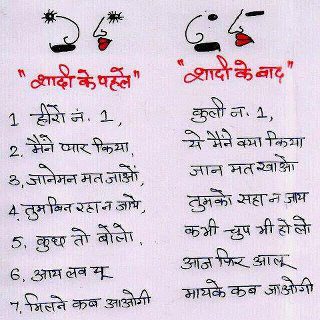 "शादी के पहले"
1 हीरो नं. 1,
2. मैंने प्यार किया,
3, जानेमन मत जाओ,
4. तुम बिन रहा न जाये,
5, कुछ तो बोलो,
6, आय लव यू
7, मिलने कब आओगी
"शादी के बाद"
कुली नं. 1,
ये मैंने क्या किया
जान मत खाओ
तुमको सहा न जाय
कभी चुप भी हो लो
आज फिर आलू
मायके कब जाओगी